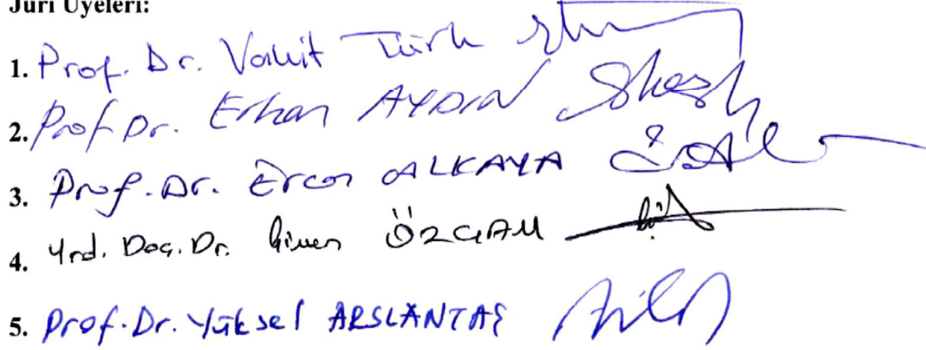 Jüri Üyeleri:
1. Prof. Dr. Vahit Türk
2. Prof Dr. Erhan AYDIN
3. Prof. Dr. Ercan ALKAYA
4. Yrd. Doç. Dr. ÖZCAN
5. Prof. Dr. Yüksel ARSLANTAŞ